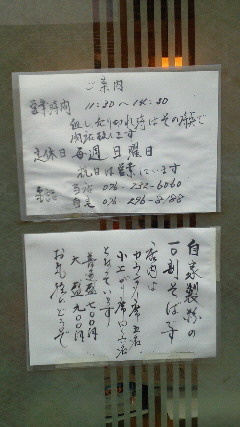 ご案内
営業時間 11:30〜14:30
但し売り切れ時はその時点で
閉店致します
定休日 毎週日曜日
祝日は営業しています
076-232-6060
自宅 076-296-8188
自家製粉の
十割そばです
店内は
カウンター席五名
小上がり席四名
となっています
普通盛 七〇〇円
大盛 九〇〇円
お気軽にどうぞ